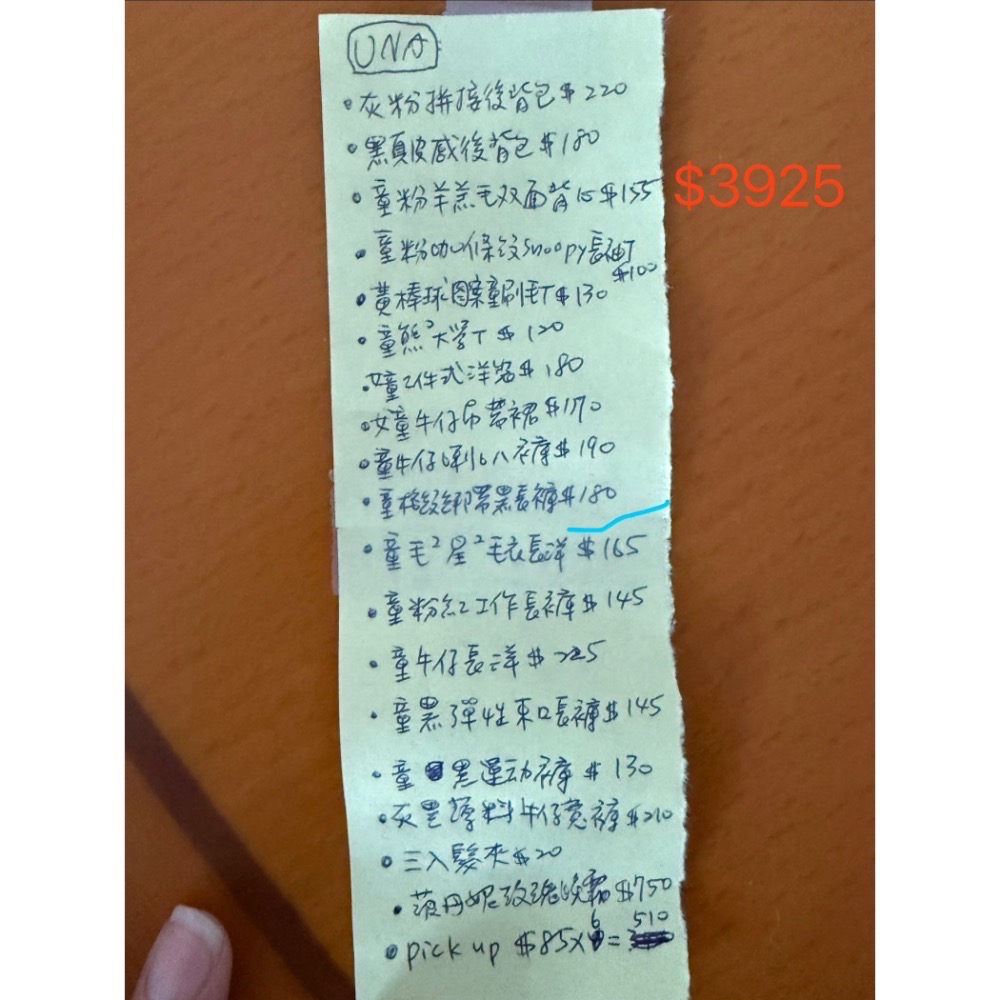 UNA
•灰粉拼接後背包$220
•黑真皮感後背包$180
$3925
•童粉羊羔毛双面背心$155
•童粉咖條紋Snoopy長袖T
$100
•黃棒球圖案童刷毛T$130
•童熊²大學T $120
•女童2件式洋裝$180
•女童牛仔布蕾裙$170
•童牛仔喇叭褲$190
•童格紋綁帶黑長褲$180
•童毛²星²毛衣長洋$165
•童粉紅工作長褲$145
•童牛仔長洋$225
•童黑彈性束口長褲$145
•童黑運动褲$130
•灰黑薄料牛仔寬褲$210
•三入髮夾$20
•菠丹妮玫瑰晚霜$750
6 510
•pick up $85x =